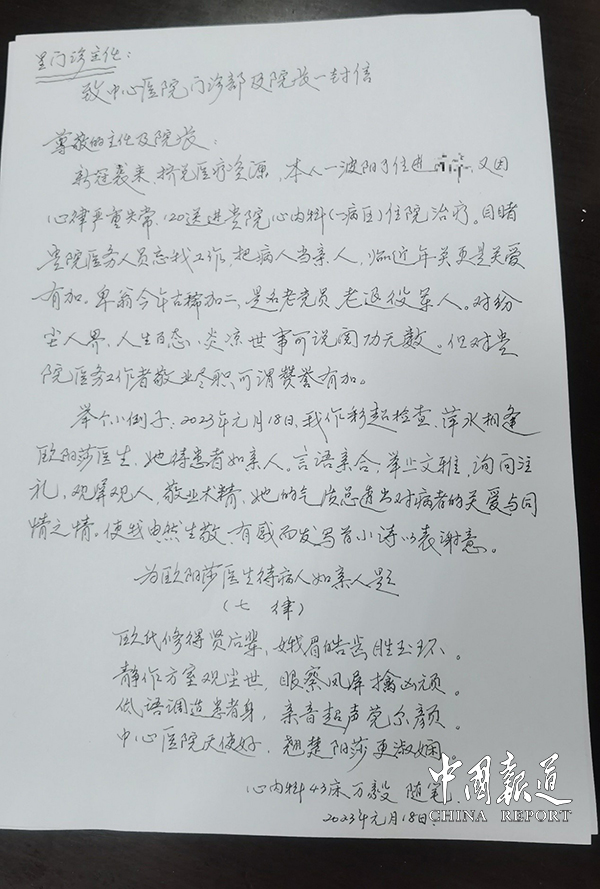 呈门诊主任:
致中心医院门诊部及院长一封信
尊敬的主任及院长:
新冠袭来、挤兑医疗资源,本人一波阳了住进 又因
心律严重失常,120送进贵院心内科(一病区)住院治疗。目睹
贵院医务人员忘我工作,把病人当亲人,临近年关更是关爱
有加。卑翁今年古稀加二,是名老党员、老退役军人。对纷
尘人界、人生百态、炎凉世事可说阅功无数。但对贵
院医务工作者敬业尽职、可谓赞誉有加。
举个小例子:2023年元月18日,我作彩超检查,萍水相逢
欧阳莎医生,她待患者如亲人。言语亲合、举止文雅,询问注
礼,观屏观人,敬业术精,她的气质总透出对病者的关爱与同
情之情。使我由然生敬、有感而发写首小诗以表谢意。
为欧阳莎医生待病人如亲人题
(七 律)
欧氏修得贤后辈,娥眉皓齿胜玉环。
静作方室观尘世,眼察风屏擒凶顽。
低语调适患者身,亲音超声莞尔颜。
中心医院天使好,翘楚阳莎更淑娴。
心内科43床 万毅 随笔.
2023年元月18日.
中国报道
CHINA REPORT